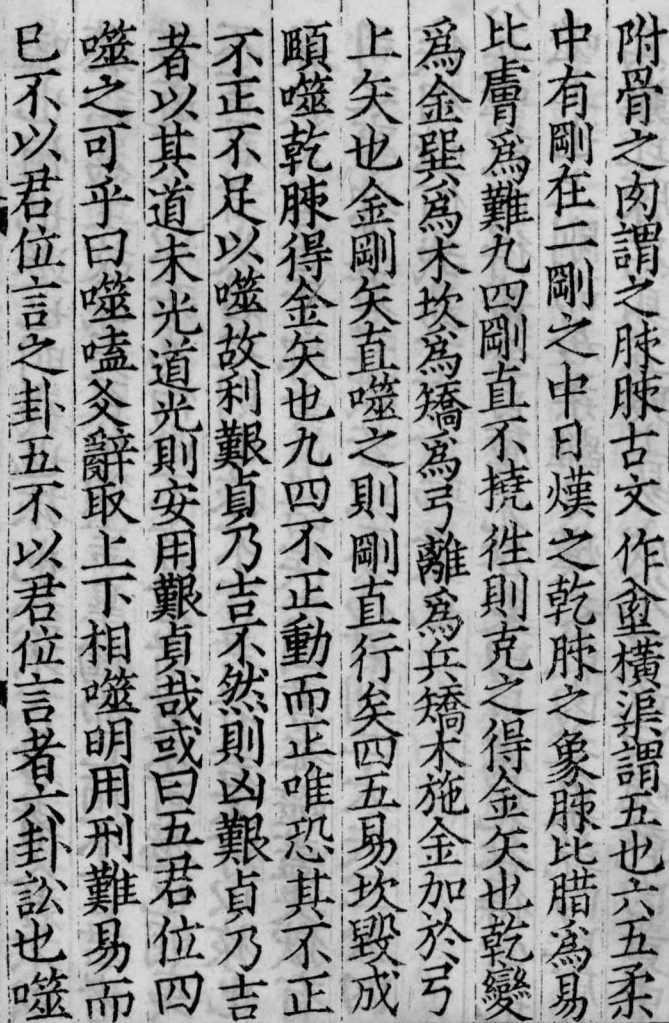 附骨之肉謂之胏胏古文作𠊊橫渠謂五也六五柔
中有剛在二剛之中日熯之乾胏之象胏比腊爲易
比膚爲難九四剛直不撓徃則克之得金矢也乾變
爲金巽爲木坎爲矯爲弓離爲兵矯木施金加於弓
上矢也金剛矢直噬之則剛直行矣四五易坎毀成
頤噬乾胏得金矢也九四不正動而正唯恐其不正
不正不足以噬故利艱貞乃吉不然則凶艱貞乃吉
者以其道未光道光則安用艱貞哉或曰五君位四
噬之可乎曰噬嗑爻辭取上下相噬明用刑難易而
已不以君位言之卦五不以君位言者六卦訟也噬